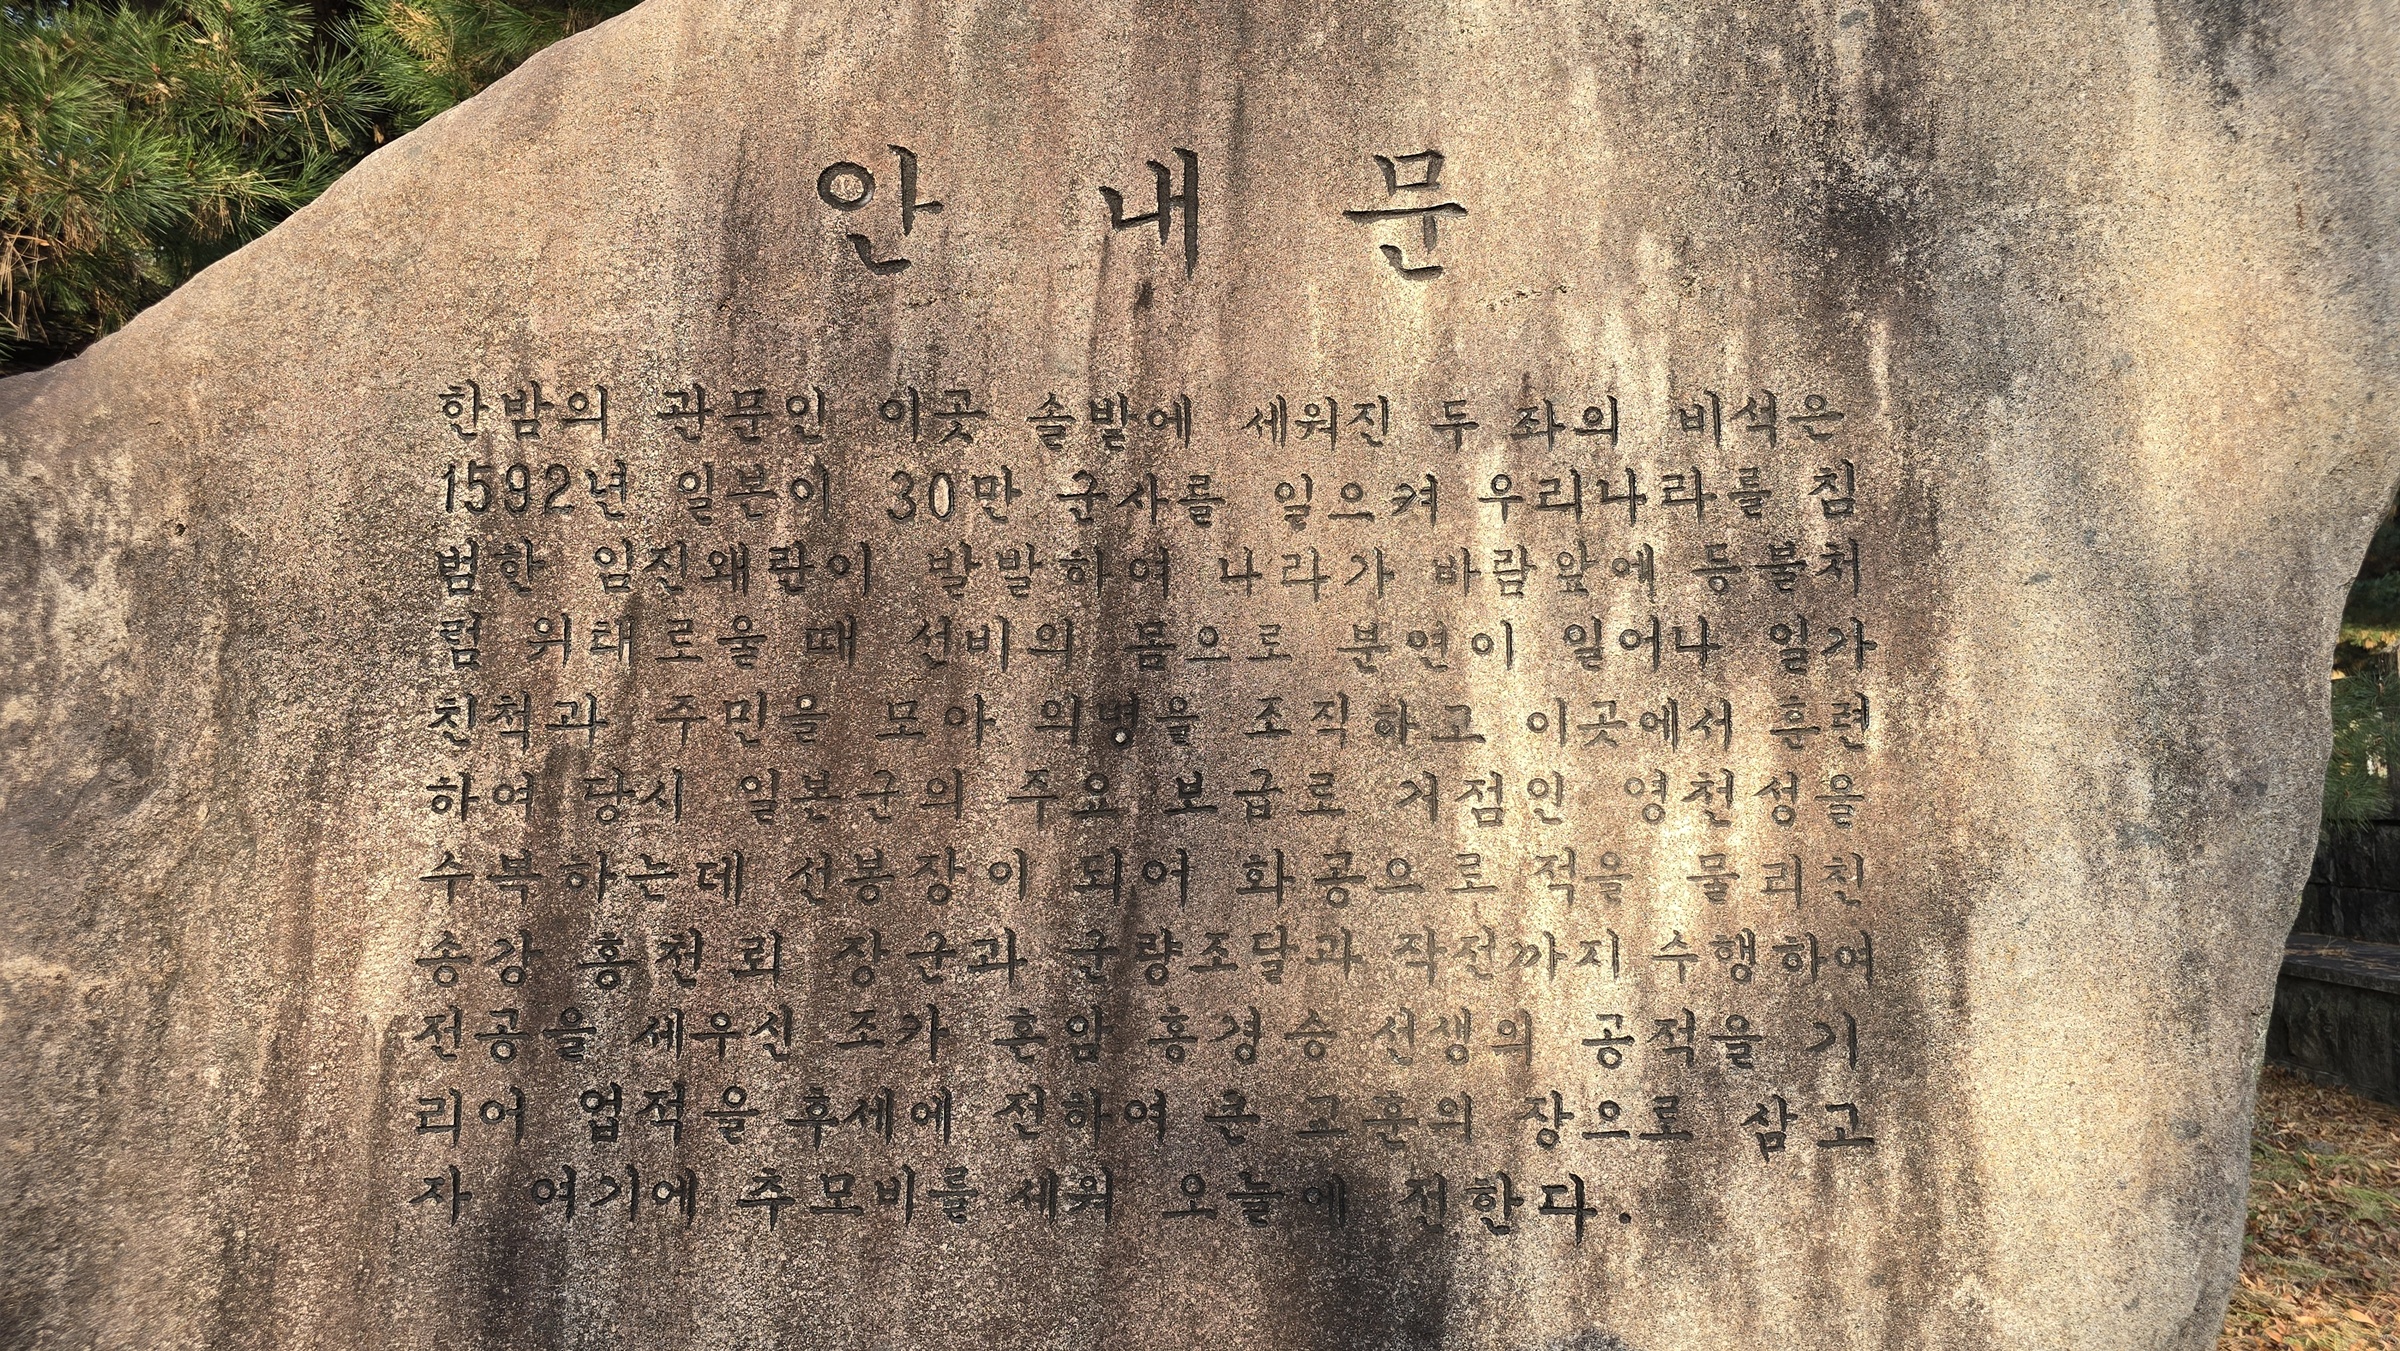 안내문
한밤의 관문인 이곳 솔밭에 세워진 두 좌의 비석은
1592년 일본이 30만 군사를 일으켜 우리나라를 침
범한 임진왜란이 발발하여 나라가 바람앞에 등불처
럼 위태로울 때 선비의 몸으로 분연이 일어나 일가
친척과 주민을 모아 의병을 조직하고 이곳에서 훈련
하여 당시 일본군의 주요 보급로 거점인 영천성을
수복하는데 선봉장이 되어 화공으로 적을 물리친
송강 홍천뢰 장군과 군량조달과 작전까지 수행하여
전공을 세우신 조카 혼암 홍경승 선생의 공적을 기
리어 업적을 후세에 전하여 큰 교훈의 장으로 삼고
자 여기에 추모비를 세워 오늘에 전한다.